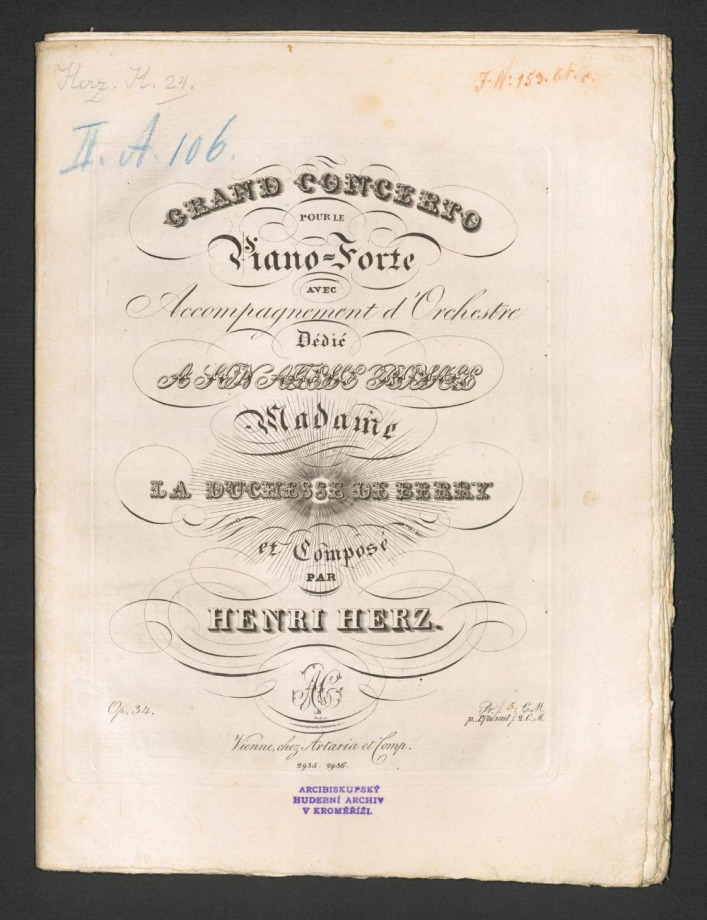 Herz. H. 24.
J. N: 153.
II. A. 106.
GRAND CONCERTO
POUR LE
Piano=Forte
AVEC
Accompagnement d'Orchestre
Dédié
A SON ALTESSE ROYALE
Madame
LA DUCHESSE DE BERRY
et Composé
PAR
HENRI HERZ.
Op. 34.
Pr. f 5. C.M.
f 2. C.M.
Vienne, chez Artaria et Comp.
2935. 2936.
ARCIBISKUPSKÝ
HUDEBNÍ ARCHIV
V KROMĚŘÍŽI.